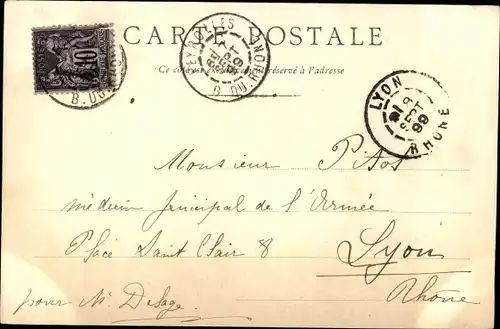 CARTE POSTALE
Ce côté est exclusivement réservé à l'adresse
POSTES
10
B. DU RHONE
PEYROLLES
SEPT
99
B. DU RHONE
LYON
9
SEPT
99
RHONE
Monsieur Pitot
médecin principal de l'Armée
Place Saint Clair 8
Lyon
Rhône
pour Mr Desage.